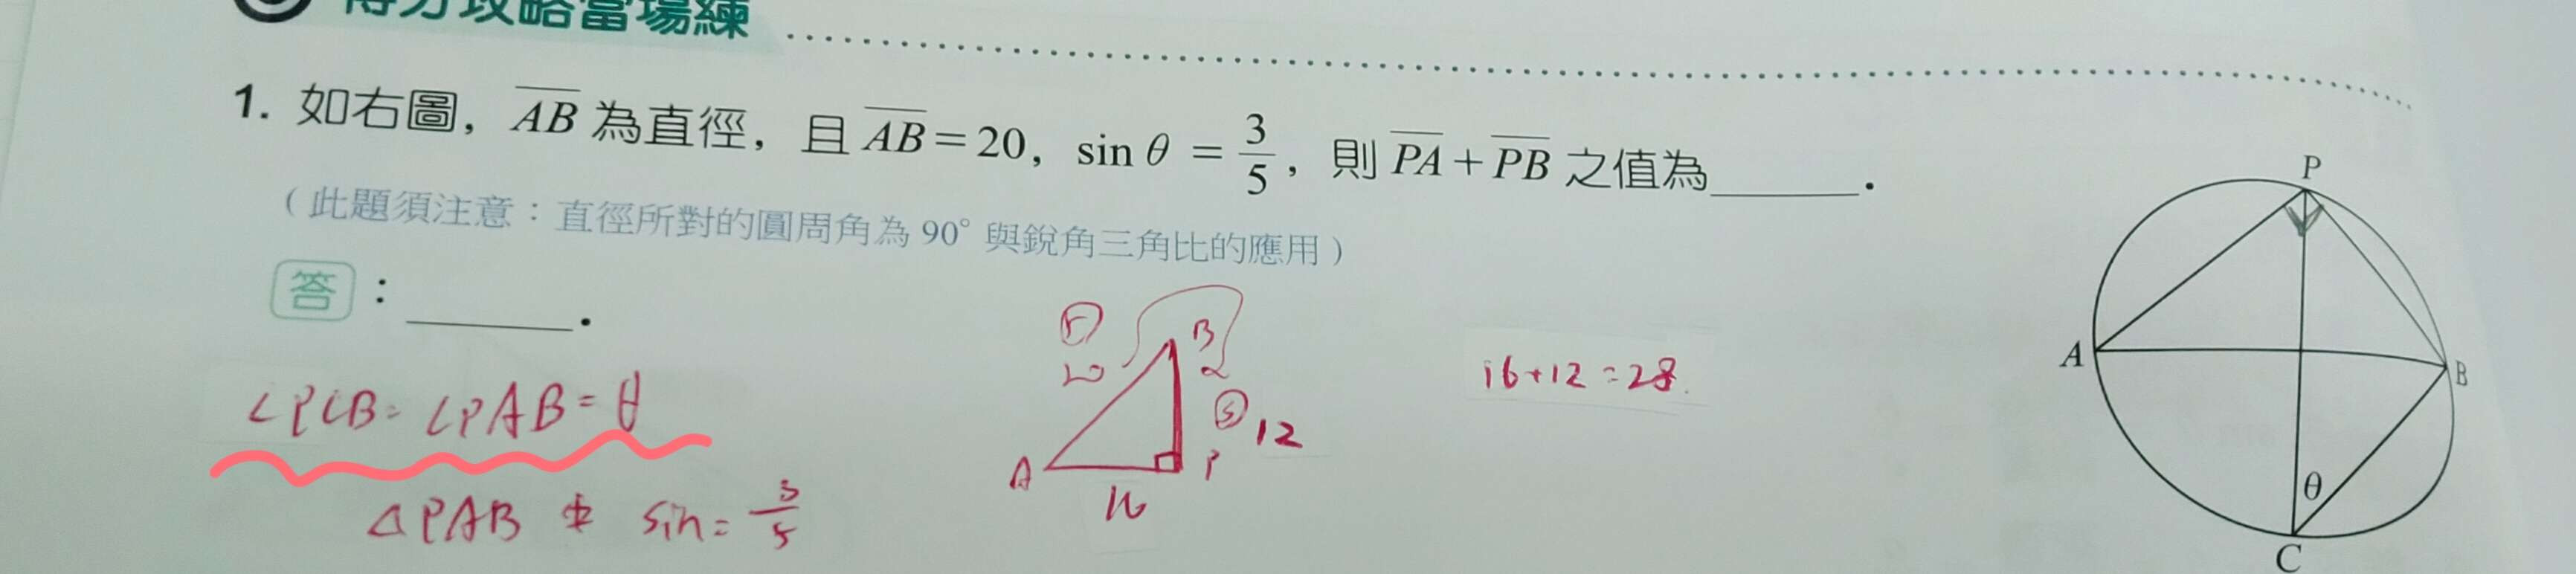 得分攻略當場練
1. 如右圖，AB 為直徑，且 AB = 20，sin θ = 3/5，則 PA + PB 之值為______.
（此題須注意：直徑所對的圓周角為 90° 與銳角三角比的應用）
答：______.
∠PCB = ∠PAB = θ
△PAB 中 sin = 3/5
⑤
20
B
③ 12
A
P
16
16+12=28.
P
A
B
θ
C